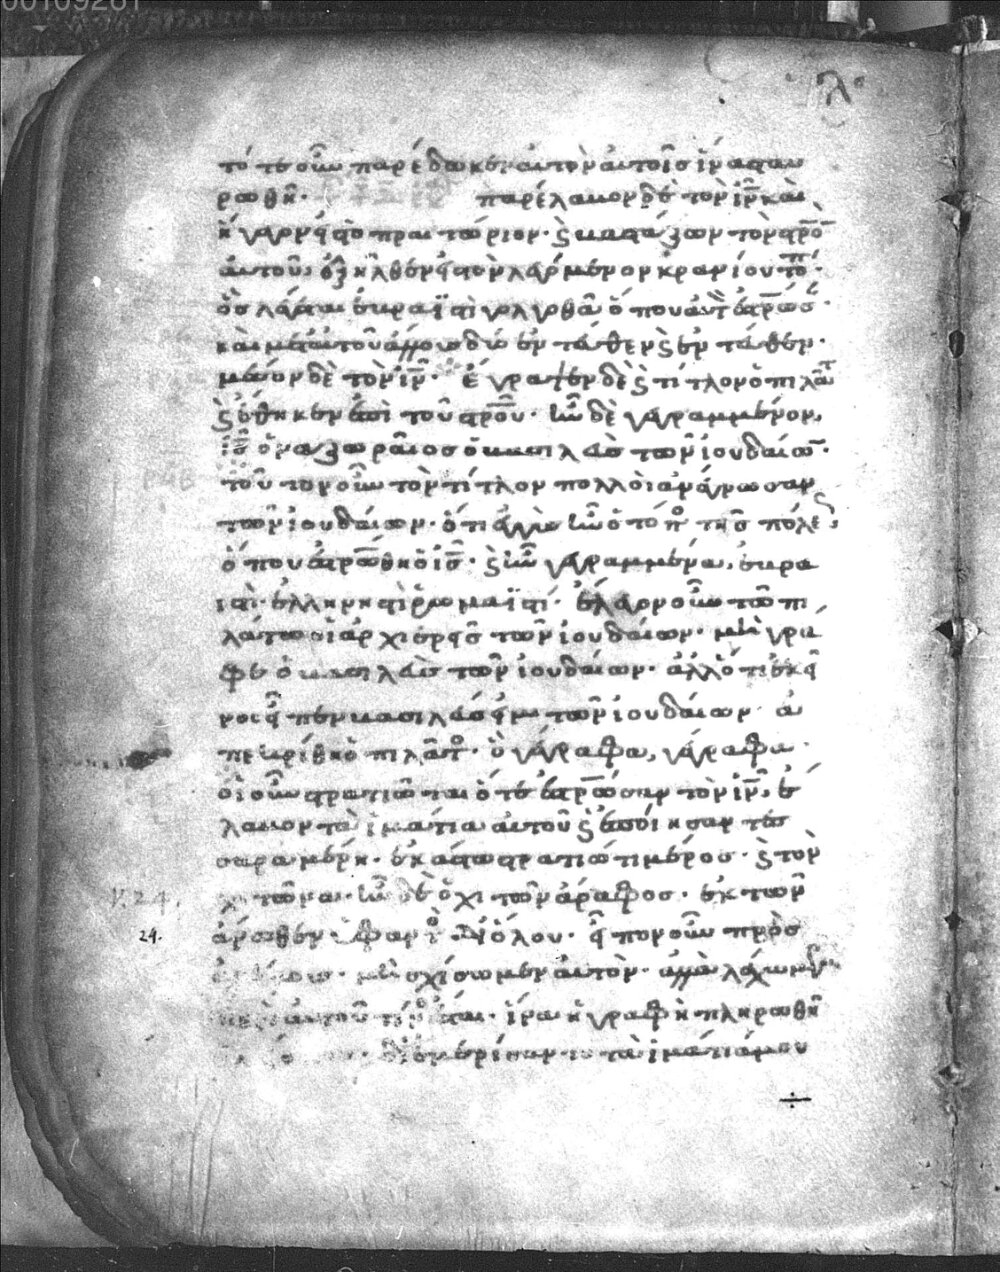 00109261
λ
τότε οὖν παρέδωκεν αὐτὸν αὐτοῖς ἵνα σταυ
ρωθῆ· παρέλαβον δὲ τὸν ἰν καὶ
ἤγαγον εἰς τὸ πραιτώριον· ϗ βαστάζων τὸν στρον
αὐτοῦ, ἐξῆλθεν εἰς τὸν λεγόμενον κρανίου τόπ·
ὃς λέγεται ἑβραϊστὶ γολγοθᾶ ὅπου αὐτὸν ἐστρωσ·
καὶ μετ αὐτοῦ ἄλλους δύο ἐντεῦθεν ϗ ἐντεῦθεν·
μέσον δὲ τὸν ἰν· ἔγραψεν δὲ ϗ τίτλον ὁ πιλᾶτ
ϗ ἔθηκεν ἐπὶ τοῦ στρου· ἦν δὲ γεγραμμένον,
ἰς ὁ ναζωραῖος ὁ βασιλεὺς τῶν ἰουδαίων·
τοῦτον οὖν τὸν τίτλον πολλοὶ ἀνέγνωσαν
τῶν ἰουδαίων· ὅτι ἐγγὺς ἦν ὁ τόπος τῆς πόλεως
ὅπου ἐστρωθη ὁ ις· ϗ ἦν γεγραμμένα, ἑβρα
ιστὶ· ἑλληνηστὶ ῥωμαϊστί· ἔλεγον οὖν τῶ πι
λάτω οἱ ἀρχιερεῖς τῶν ἰουδαίων· μὴ γρά
φε ὁ βασιλεὺς τῶν ἰουδαίων· ἀλλ ὅτι ἐκεῖ
νος εἶπεν βασιλεύς εἰμι τῶν ἰουδαίων· ἀ
πεκρίθη ὁ πιλᾶτος· ὃ γέγραφα, γέγραφα·
οἱ οὖν στρατιῶται ὅτε ἐστρωσαν τὸν ἰν, ἔ
λαβον τὰ ἱμάτια αὐτοῦ ϗ ἐποίησαν τέσ
σαρα μέρη· ἑκάστω στρατιώτι μέρος· ϗ τὸν
χιτῶνα· ἦν δὲ ὁ χιτῶν ἄραφος· ἐκ τῶν
V.24.
24.
ἄνωθεν ὑφαντὸς δι ὅλου· εἶπον οὖν πρὸς
μὴ σχίσωμεν αὐτὸν· ἀλλὰ λάχωμεν
περὶ αὐτοῦ τίνος ἔσται· ἵνα ἡ γραφὴ πληρωθῆ
διεμερίσαντο τὰ ἱμάτιά μου